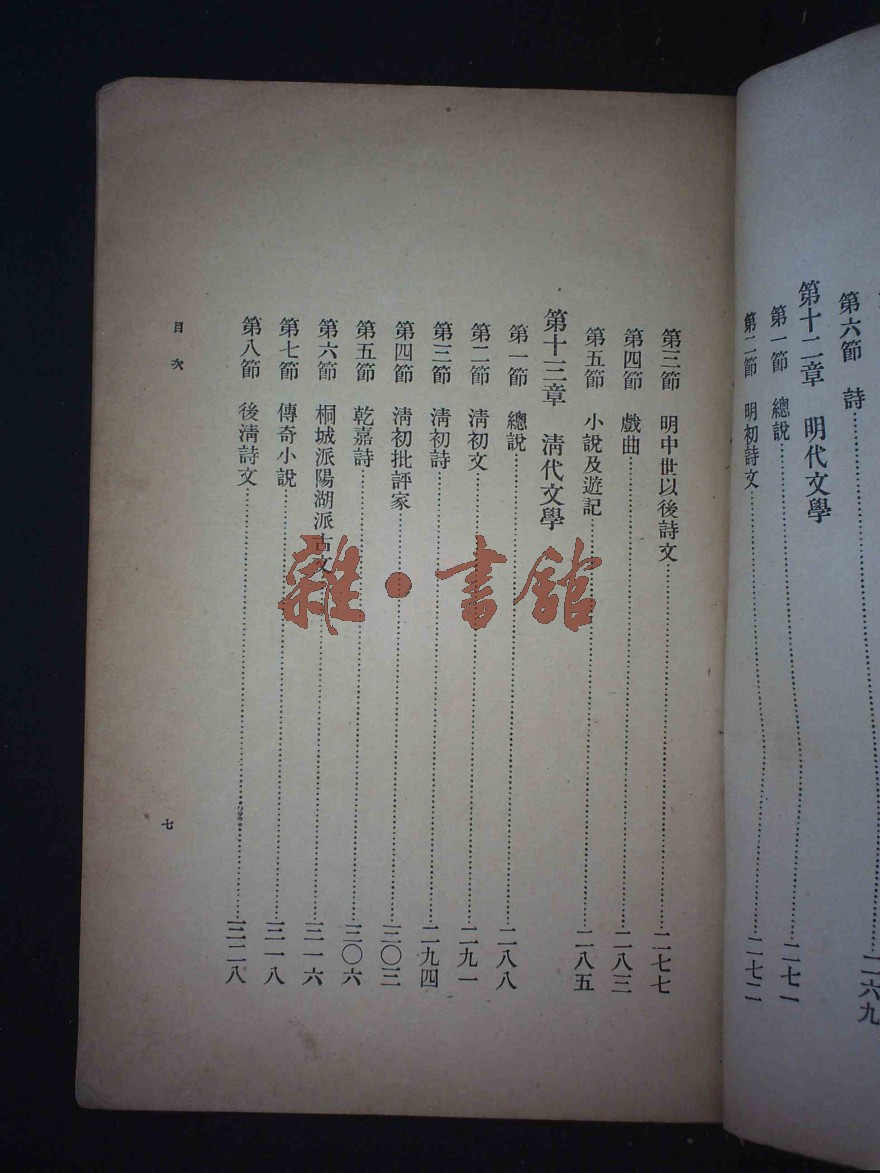 第六節 詩……二六九
第十二章 明代文學
第一節 總說……二七一
第二節 明初詩文……二七二
第三節 明中世以後詩文……二七七
第四節 戲曲……二八三
第五節 小說及遊記……二八五
第十三章 淸代文學
第一節 總說……二八八
第二節 淸初文……二九一
第三節 淸初詩……二九四
第四節 淸初批評家……三〇三
第五節 乾嘉詩……三〇六
第六節 桐城派陽湖派古文……三一六
第七節 傳奇小說……三一八
第八節 後淸詩文……三二八
目次
七
雜·書館